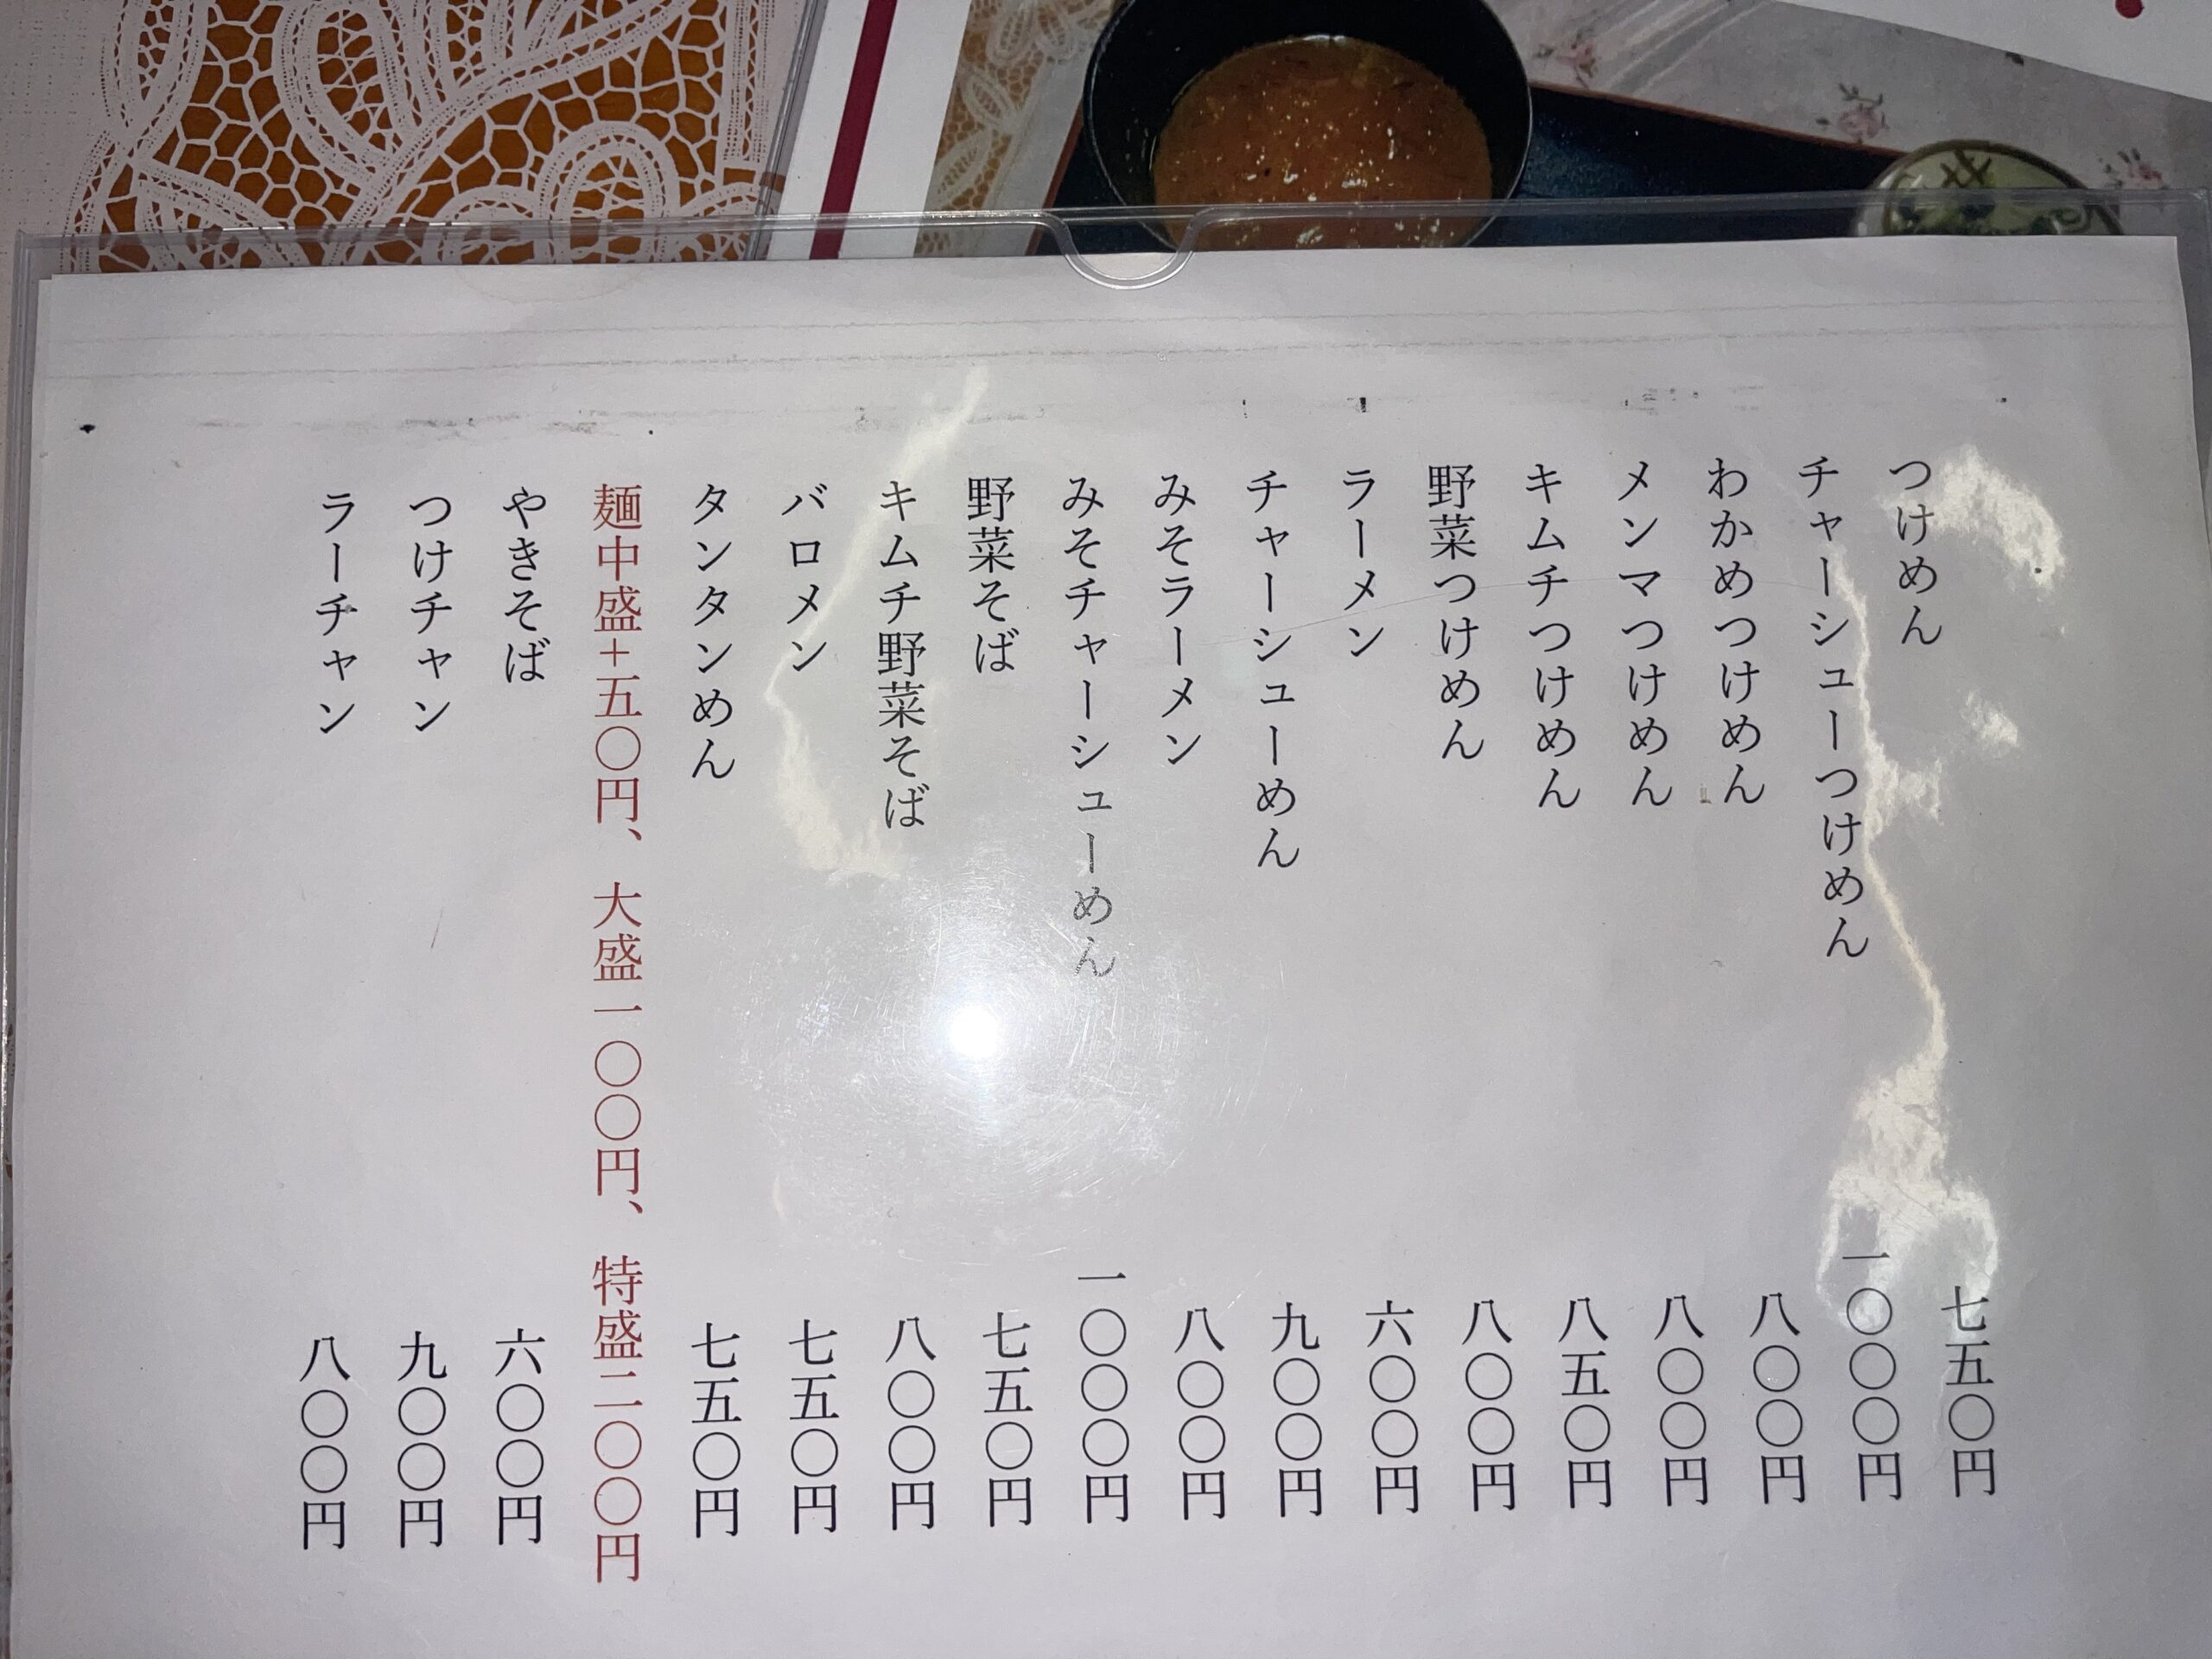 つけめん 七五〇円
チャーシューつけめん 一〇〇〇円
わかめつけめん 八〇〇円
メンマつけめん 八〇〇円
キムチつけめん 八五〇円
野菜つけめん 八〇〇円
ラーメン 六〇〇円
チャーシューめん 九〇〇円
みそラーメン 八〇〇円
みそチャーシューめん 一〇〇〇円
野菜そば 七五〇円
キムチ野菜そば 八〇〇円
バロメン 七五〇円
タンタンめん 七五〇円
麺中盛+五〇円、大盛一〇〇円、特盛二〇〇円
やきそば 六〇〇円
つけチャン 九〇〇円
ラーチャン 八〇〇円